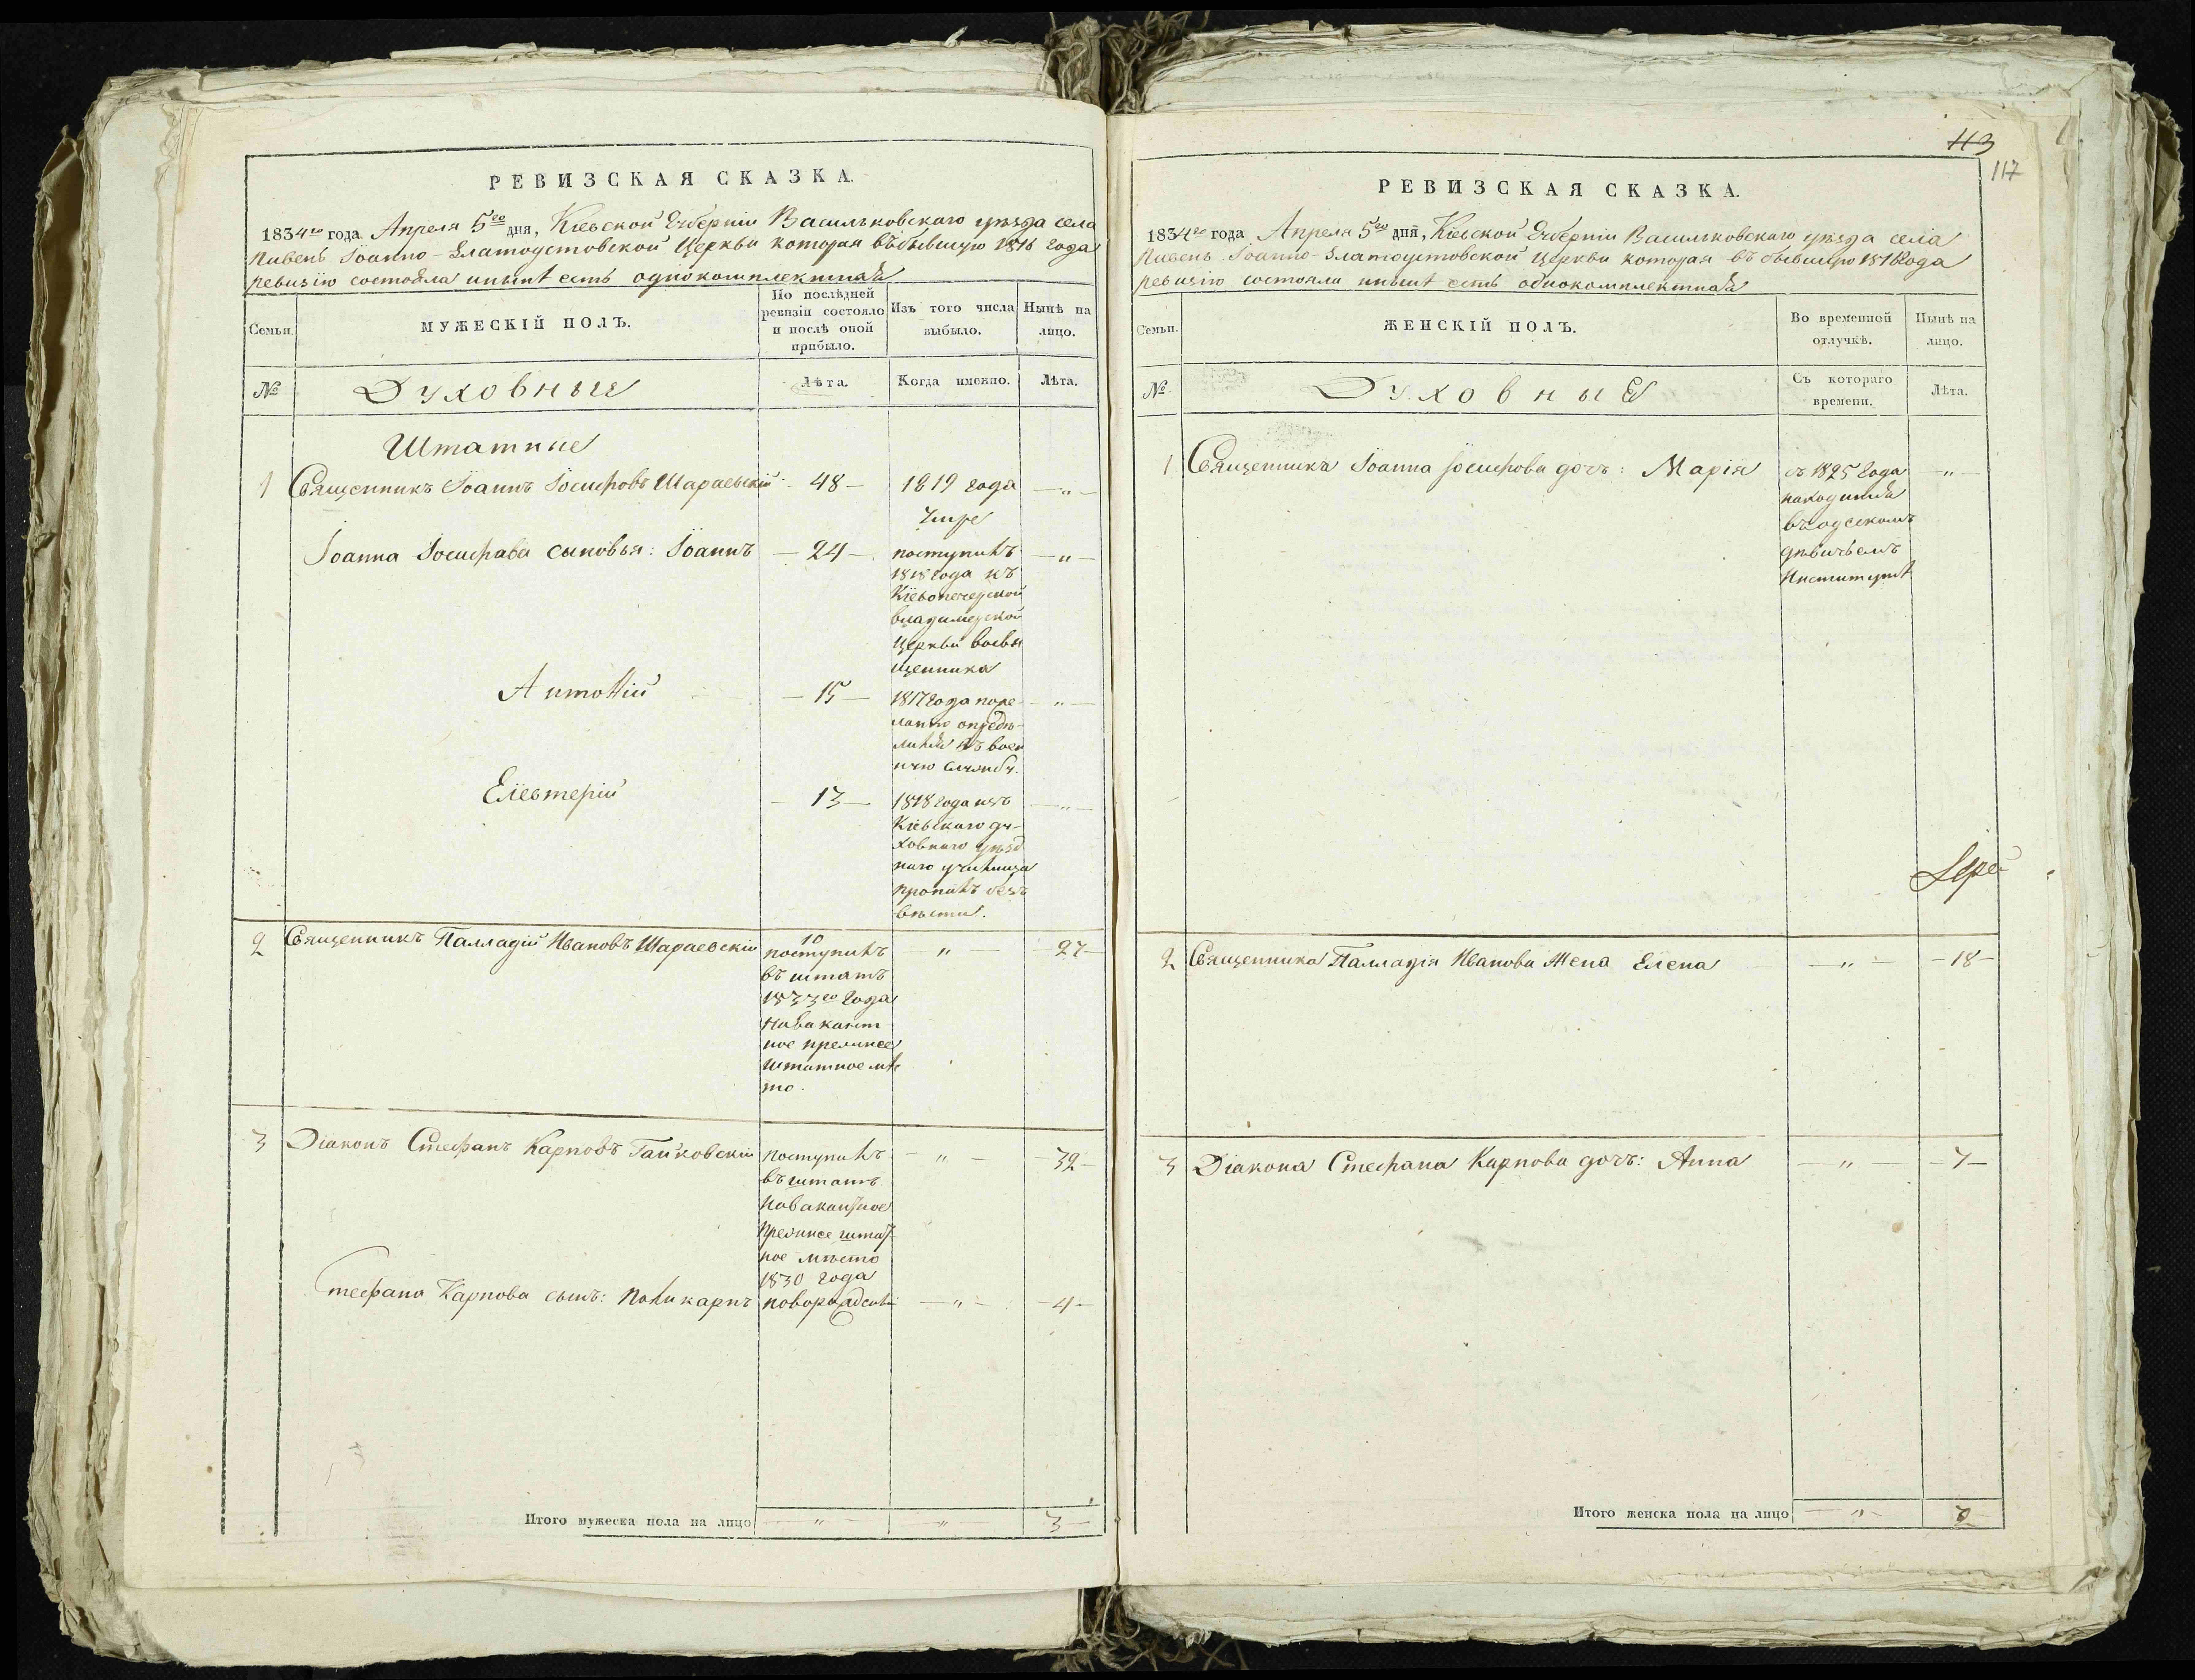 РЕВИЗСКАЯ СКАЗКА.
1834го года Апреля 5го дня, Кіевской Губерніи Васильковскаго уѣзда села
Пивень Іоанно-Златоустовской Церкви которая въ бывшую 1816 года
ревизію состояла инынѣ есть однокомплектная
Семьи.
МУЖЕСКІЙ ПОЛЪ.
По послѣдней
ревизіи состояло
и послѣ оной
прибыло.
Изъ того числа
выбыло.
Нынѣ на
лицо.
№
Духовные
Лѣта.
Когда именно.
Лѣта.
Штатные
1 Священникъ Іоаннъ Іосифовъ Шараевскій - 48 - 1819 года - „ -
умре
Іоанна Іосифова сыновья: Іоаннъ - 24 - поступилъ - „ -
1818 года къ
Кіевопечерской
владимерской
Церкви восвя
щенника
Антоній - 15 - 1817 года поже - „ -
ланію опредѣ-
лился въ воен
ную службу.
Елевтерій - 13 - 1818 года изъ - „ -
Кіевскаго ду-
ховнаго уѣзд
наго училища
пропалъ безъ
вѣсти.
2 Священникъ Палладій Ивановъ Шараевскій 10 - „ - 27 -
поступилъ
въ штатъ
1833го года
на вакант
ное прежнее
штатное мѣ
то.
3 Діаконъ Стефанъ Карповъ Гайковскій поступилъ - „ - - 32 -
въ штатъ
на вакантное
прежнее штат
ное мѣсто
1830 года
Стефана Карпова сынъ: Поликарпъ новорожденъ - „ - - 4 -
Итого мужеска пола на лицо - „ - - „ - 3 -
113
117
РЕВИЗСКАЯ СКАЗКА.
1834го года Апреля 5го дня, Кіевской Губерніи Васильковскаго уѣзда села
Пивень Іоанно-Златоустовской Церкви которая въ бывшую 1816 года
ревизію состояла инынѣ есть однокомплектная
Семьи.
ЖЕНСКІЙ ПОЛЪ.
Во временной
отлучкѣ.
Нынѣ на
лицо.
№.
Духовные
Съ котораго
времени.
Лѣта.
1 Священника Іоанна Іосифова дочь: Марія съ 1825 года - „ -
находится
въ одесскомъ
дѣвичьемъ
Институтѣ
Іерей
2 Священника Палладія Иванова Жена Елена - „ - - 18 -
3 Діакона Стефана Карпова дочь: Анна - „ - - 7 -
Итого женска пола на лицо - „ -